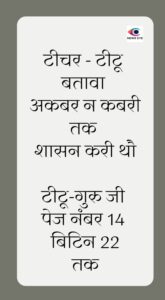 टीचर - टीटू
बतावा
अकबर न कबरी
तक
शासन करी थौ
टीटू-गुरू जी
पेज नंबर 14
बिटिन 22
तक